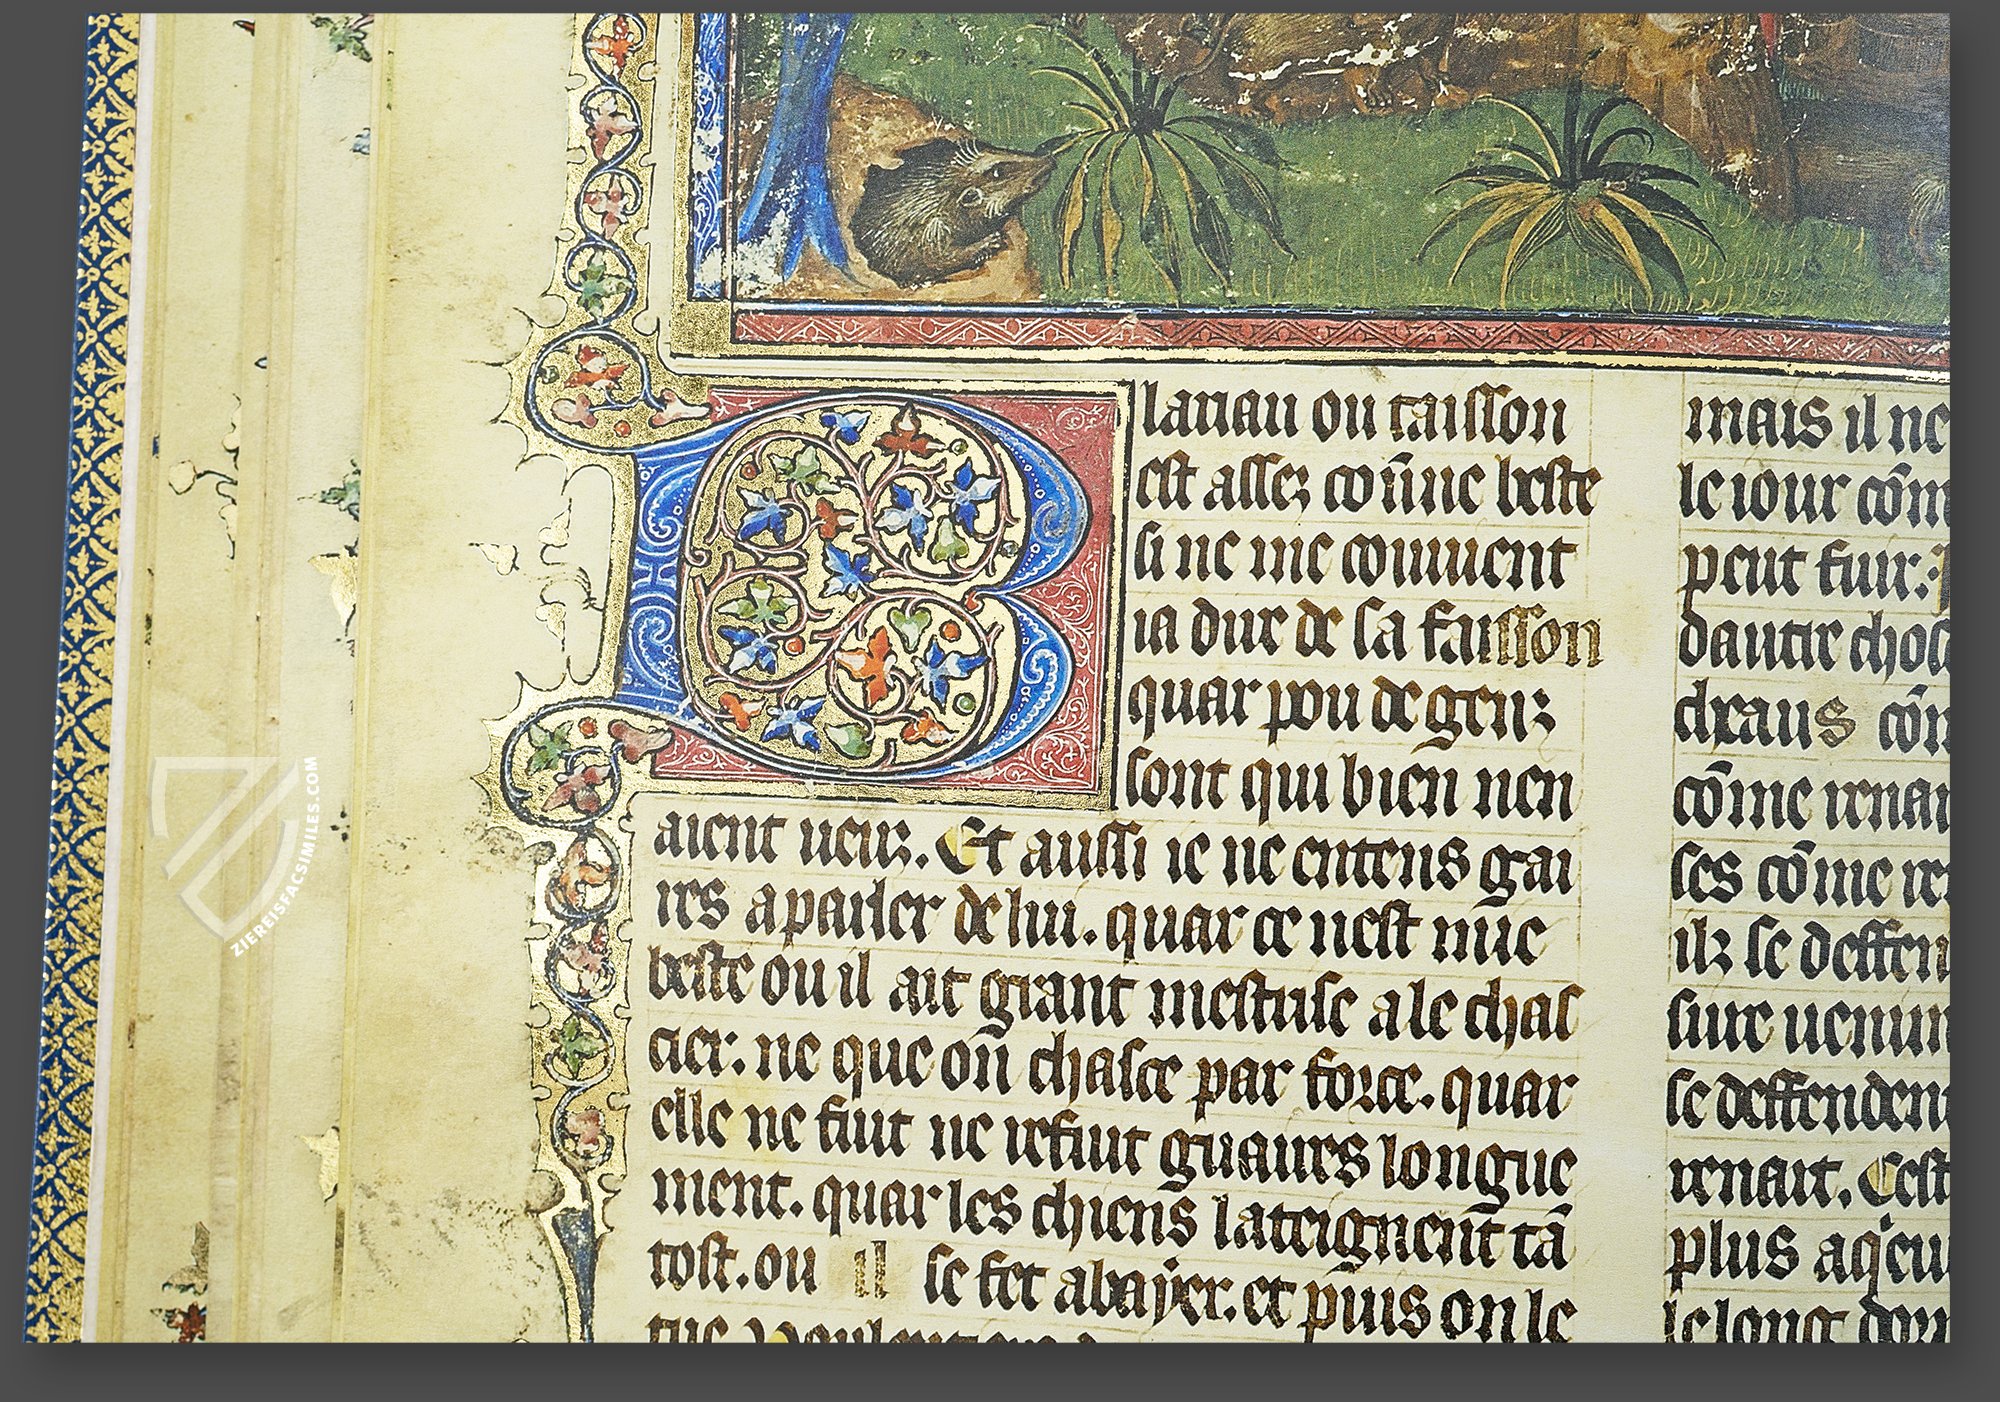 Blariau ou taisson
est assez cōnue beste
si ne me couuient
ia dire de sa faisson
quar pou de genz
sont qui bien nen
aient ueuz. Et aussi ie ne entens gai
res a parler de lui. quar ce nest mie
beste ou il ait grant mestrise a le chas
cier: ne que on chasce par force. quar
elle ne fuit ne refuit guaires longue
ment. quar les chiens lateignent tā
tost. ou il se fet abayer. et puis on le
tue
mais il ne
le iour cōm
peut fuir:
dautre chos
cheaus cōm
cōme renar
ses cōme re
ilz se deffen
siure uenim
se deffendent
renart. Cest
plus aq̄eu
le long dor
ZIEREISFACSIMILES.COM